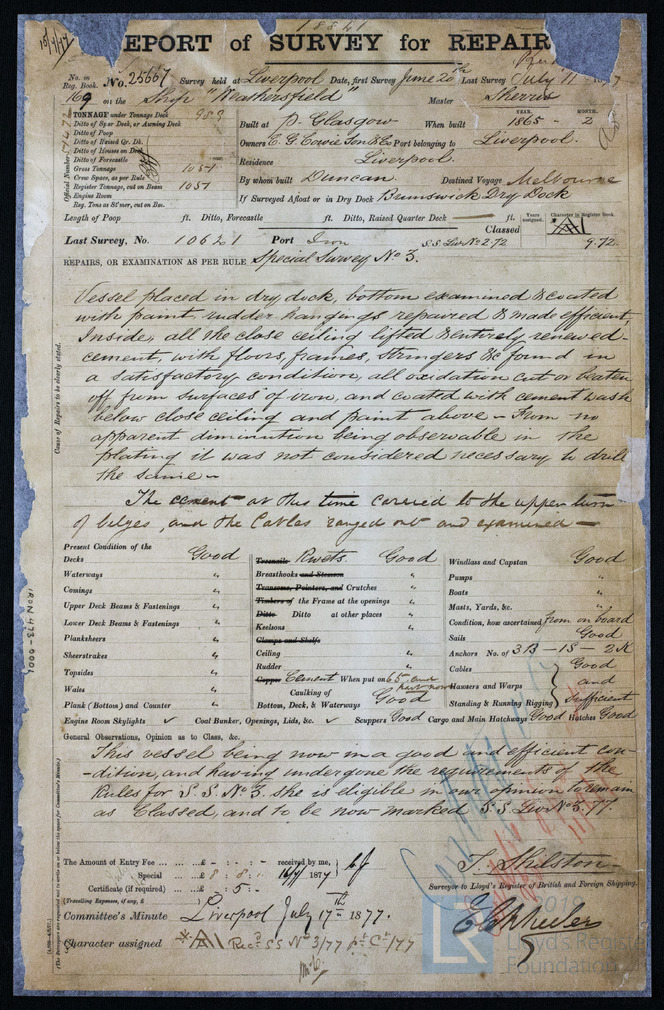 EPORT of SURVEY for REPAIR
No. in Reg. Book. No. 25667 Survey held at Liverpool Date, first Survey June 20th Last Survey July 11
169 on the Ship "Weathersfield" Master Sherris
TONNAGE under Tonnage Deck 983
Ditto of Spar Deck, or Awning Deck
Ditto of Poop
Ditto of Raised Qr. Dk.
Ditto of Houses on Deck
Ditto of Forecastle
Gross Tonnage 1051
Crew Space, as per Rule
Register Tonnage, cut on Beam 1051
Engine Room
Reg. Tons as St'mer, cut on Bm.
Official Number
Built at P. Glasgow When built YEAR. 1865 - MONTH. 2
Owners E. G. Cowie Son & Co Port belonging to Liverpool.
Residence Liverpool.
By whom built Duncan. Destined Voyage Melbourne
If Surveyed Afloat or in Dry Dock Brunswick Dry Dock
Length of Poop ft. Ditto, Forecastle ft. Ditto, Raised Quarter Deck — ft.
Years assigned. Character in Register Book.
Classed A1
Last Survey, No. 10621 Port Iron S.S. Liv No 2.72 9.72
REPAIRS, OR EXAMINATION AS PER RULE Special Survey No 3.
Vessel placed in dry dock, bottom examined & coated
with paint, rudder hangings repaired & made efficient,
Inside, all the close ceiling lifted & entirely renewed-
cement, with floors, frames, stringers &c found in
a satisfactory condition, all oxidation cut or beaten
off from surfaces of iron, and coated with cement wash
below close ceiling and paint above - From no
apparent diminution being observable in the
plating it was not considered necessary to drill
the same -
The cement at this time carried to the upper turn
of bilges, and the Cables ranged out and examined —
Cause of Repairs to be clearly stated.
IRON 473-0006
Present Condition of the
Decks Good
Waterways "
Comings "
Upper Deck Beams & Fastenings "
Lower Deck Beams & Fastenings "
Planksheers "
Sheerstrakes "
Topsides "
Wales "
Plank (Bottom) and Counter "
Treenails Rivets. Good
Breasthooks and Stemson "
Transoms, Pointers, and Crutches "
Timbers of the Frame at the openings "
Ditto Ditto at other places "
Keelsons "
Clamps and Shelfs
Ceiling "
Rudder "
Copper Cement When put on 65, and part now
Caulking of Bottom, Deck, & Waterways Good
Windlass and Capstan Good
Pumps "
Boats "
Masts, Yards, &c. "
Condition, how ascertained from on board
Sails Good
Anchors No. of 3B - 1S - 2K
Cables Good
Hawsers and Warps and
Standing & Running Rigging sufficient
Engine Room Skylights ✓ Coal Bunker, Openings, Lids, &c. ✓ Scuppers Good Cargo and Main Hatchways Good Hatches Good
General Observations, Opinion as to Class, &c.
This vessel being now in a good and efficient con-
-dition, and having undergone the requirements of the
Rules for S.S. No 3. she is eligible in our opinion to remain
as Classed, and to be now marked S.S. Liv No 3. 77
The Amount of Entry Fee £ - : - : - received by me,
Special £ 8 : 8 : 1877
Certificate (if required) : 5 : -
(Travelling Expenses, if any, £ )
Surveyor to Lloyd's Register of British and Foreign Shipping.
Committee's Minute Liverpool July 17th 1877.
Character assigned A1
Lloyd's Register
Foundation